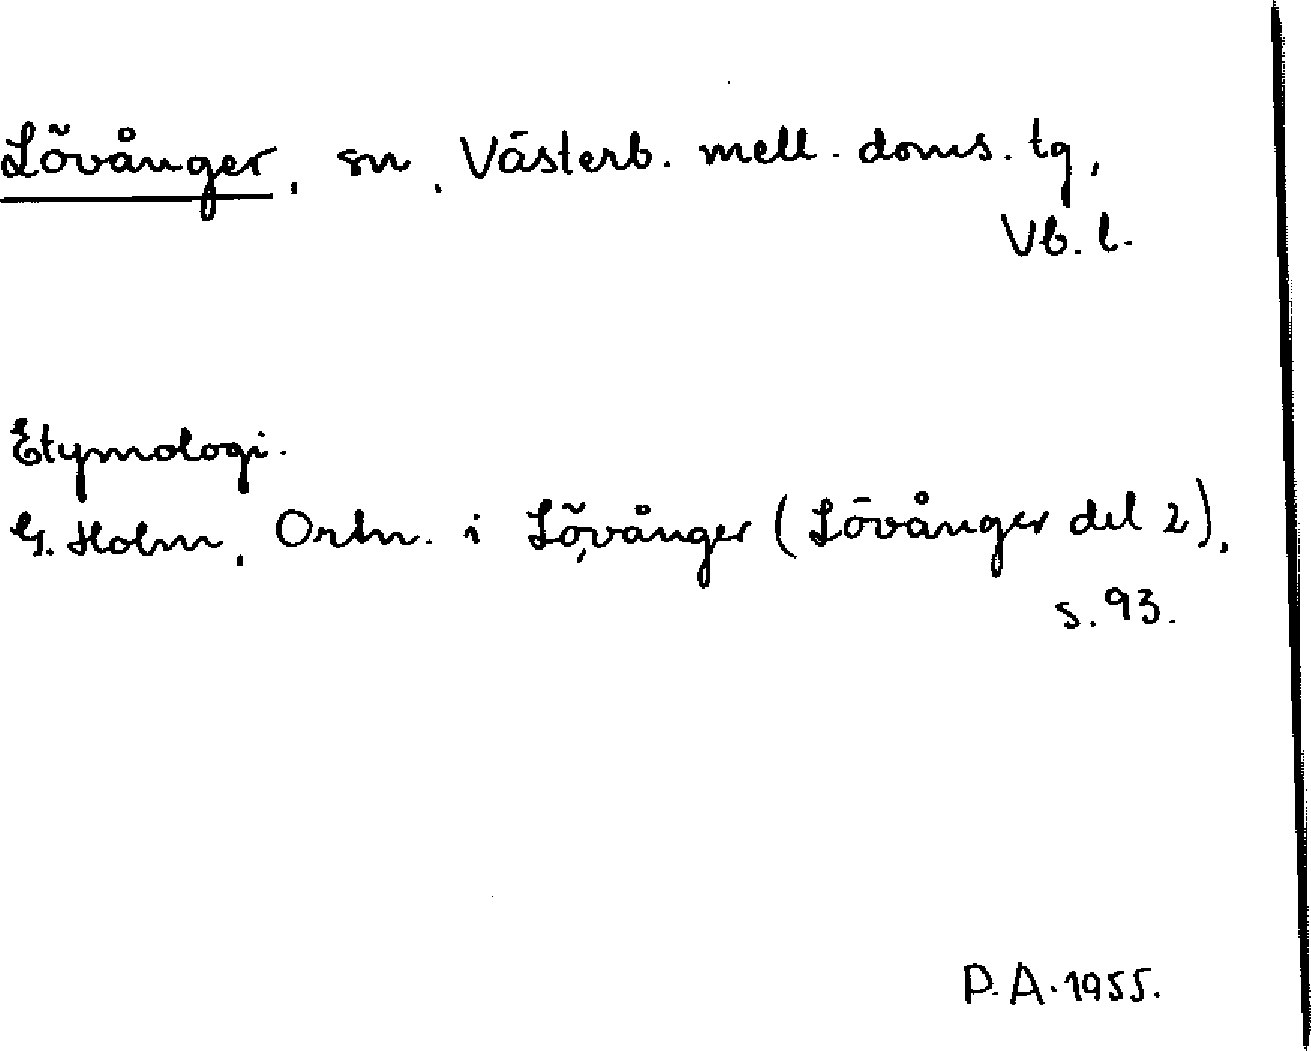 Lövånger, sn, Västerb. mell. doms. tg,
Vb. l.
Etymologi.
G. Holm, Ortn. i Lövånger (Lövånger del 2),
s. 93.
P. A. 1955.